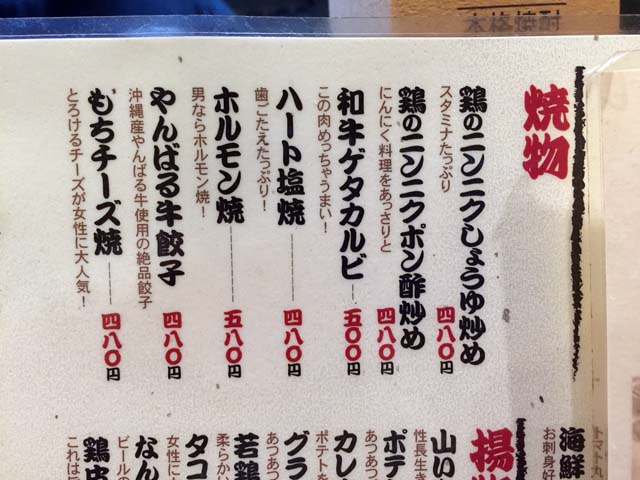 本格焼酎
焼物
鶏のニンニクしょうゆ炒め
四八〇円
スタミナたっぷり
鶏のニンニクポン酢炒め
四八〇円
にんにく料理をあっさりと
和牛ゲタカルビ
五〇〇円
この肉めっちゃうまい!
ハート塩焼
四八〇円
歯ごたえたっぷり!
ホルモン焼
五八〇円
男ならホルモン焼!
やんばる牛餃子
四八〇円
沖縄産やんばる牛使用の絶品餃子
もちチーズ焼
四八〇円
とろけるチーズが女性に大人気!
トマト丸
海鮮
お刺身好
揚物
山い
性長生き
ポテ
あつあつ
カレ
ポテトを
グラ
あつあつ
若鶏
柔らかい
タコ
女性に
なん
ビールの
鶏皮
これは